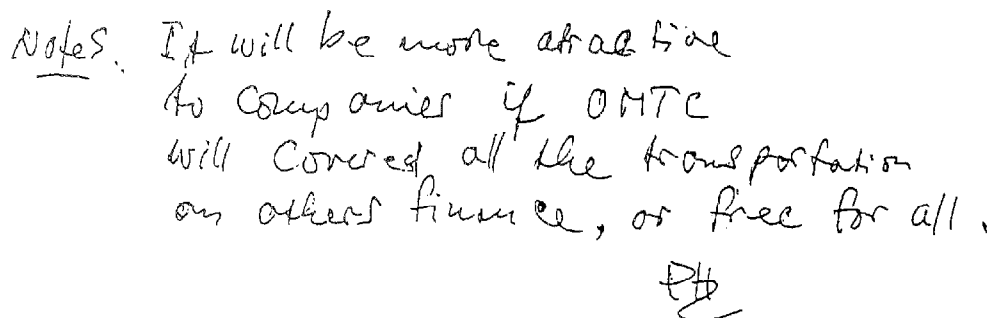 Notes. It will be more atractive
to Companies if OMTC
will Covered all the transportation
on others finance, or free for all.